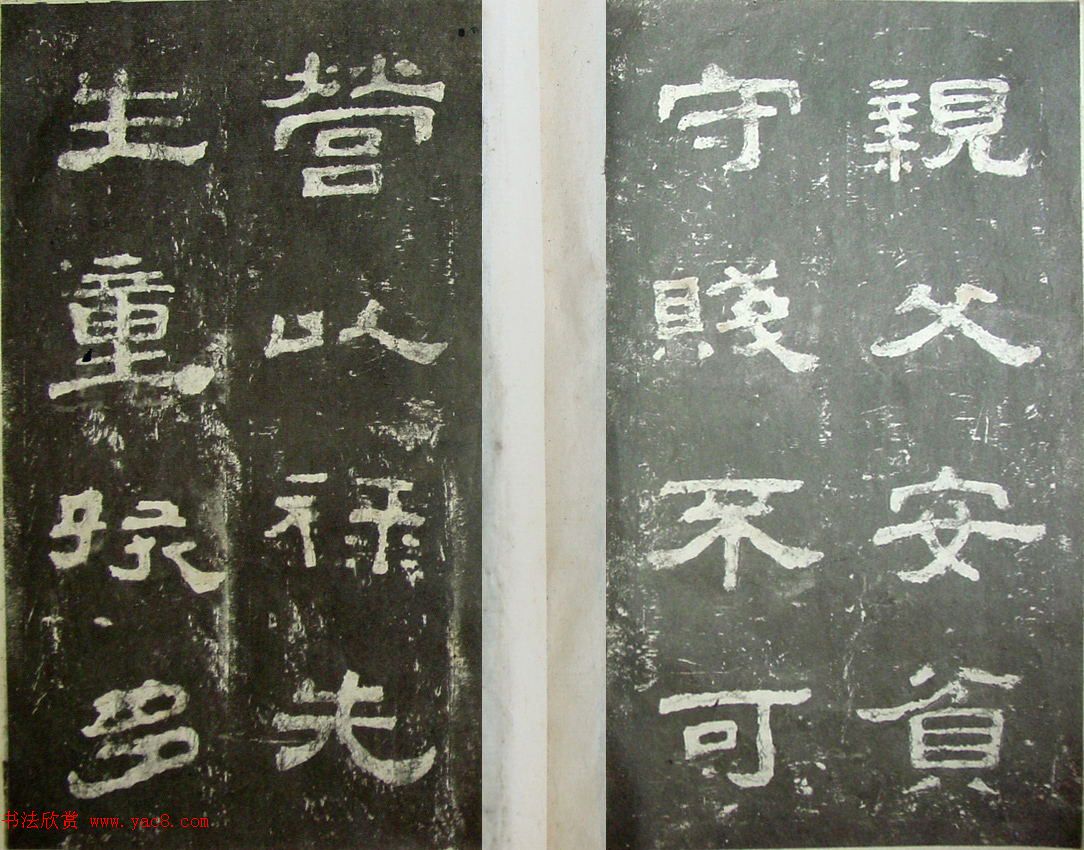 親父安貧
守賤不可
營以祿先
生童孩多
书法欣赏 www.yac8.com